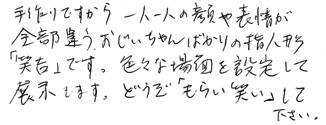 手作りですから 一人一人の顔や表情が
全部違う、おじいちゃんばかりの指人形
「笑吉」です。色々な場面を設定して
展示します。どうぞ「もらい笑い」して
下さい。